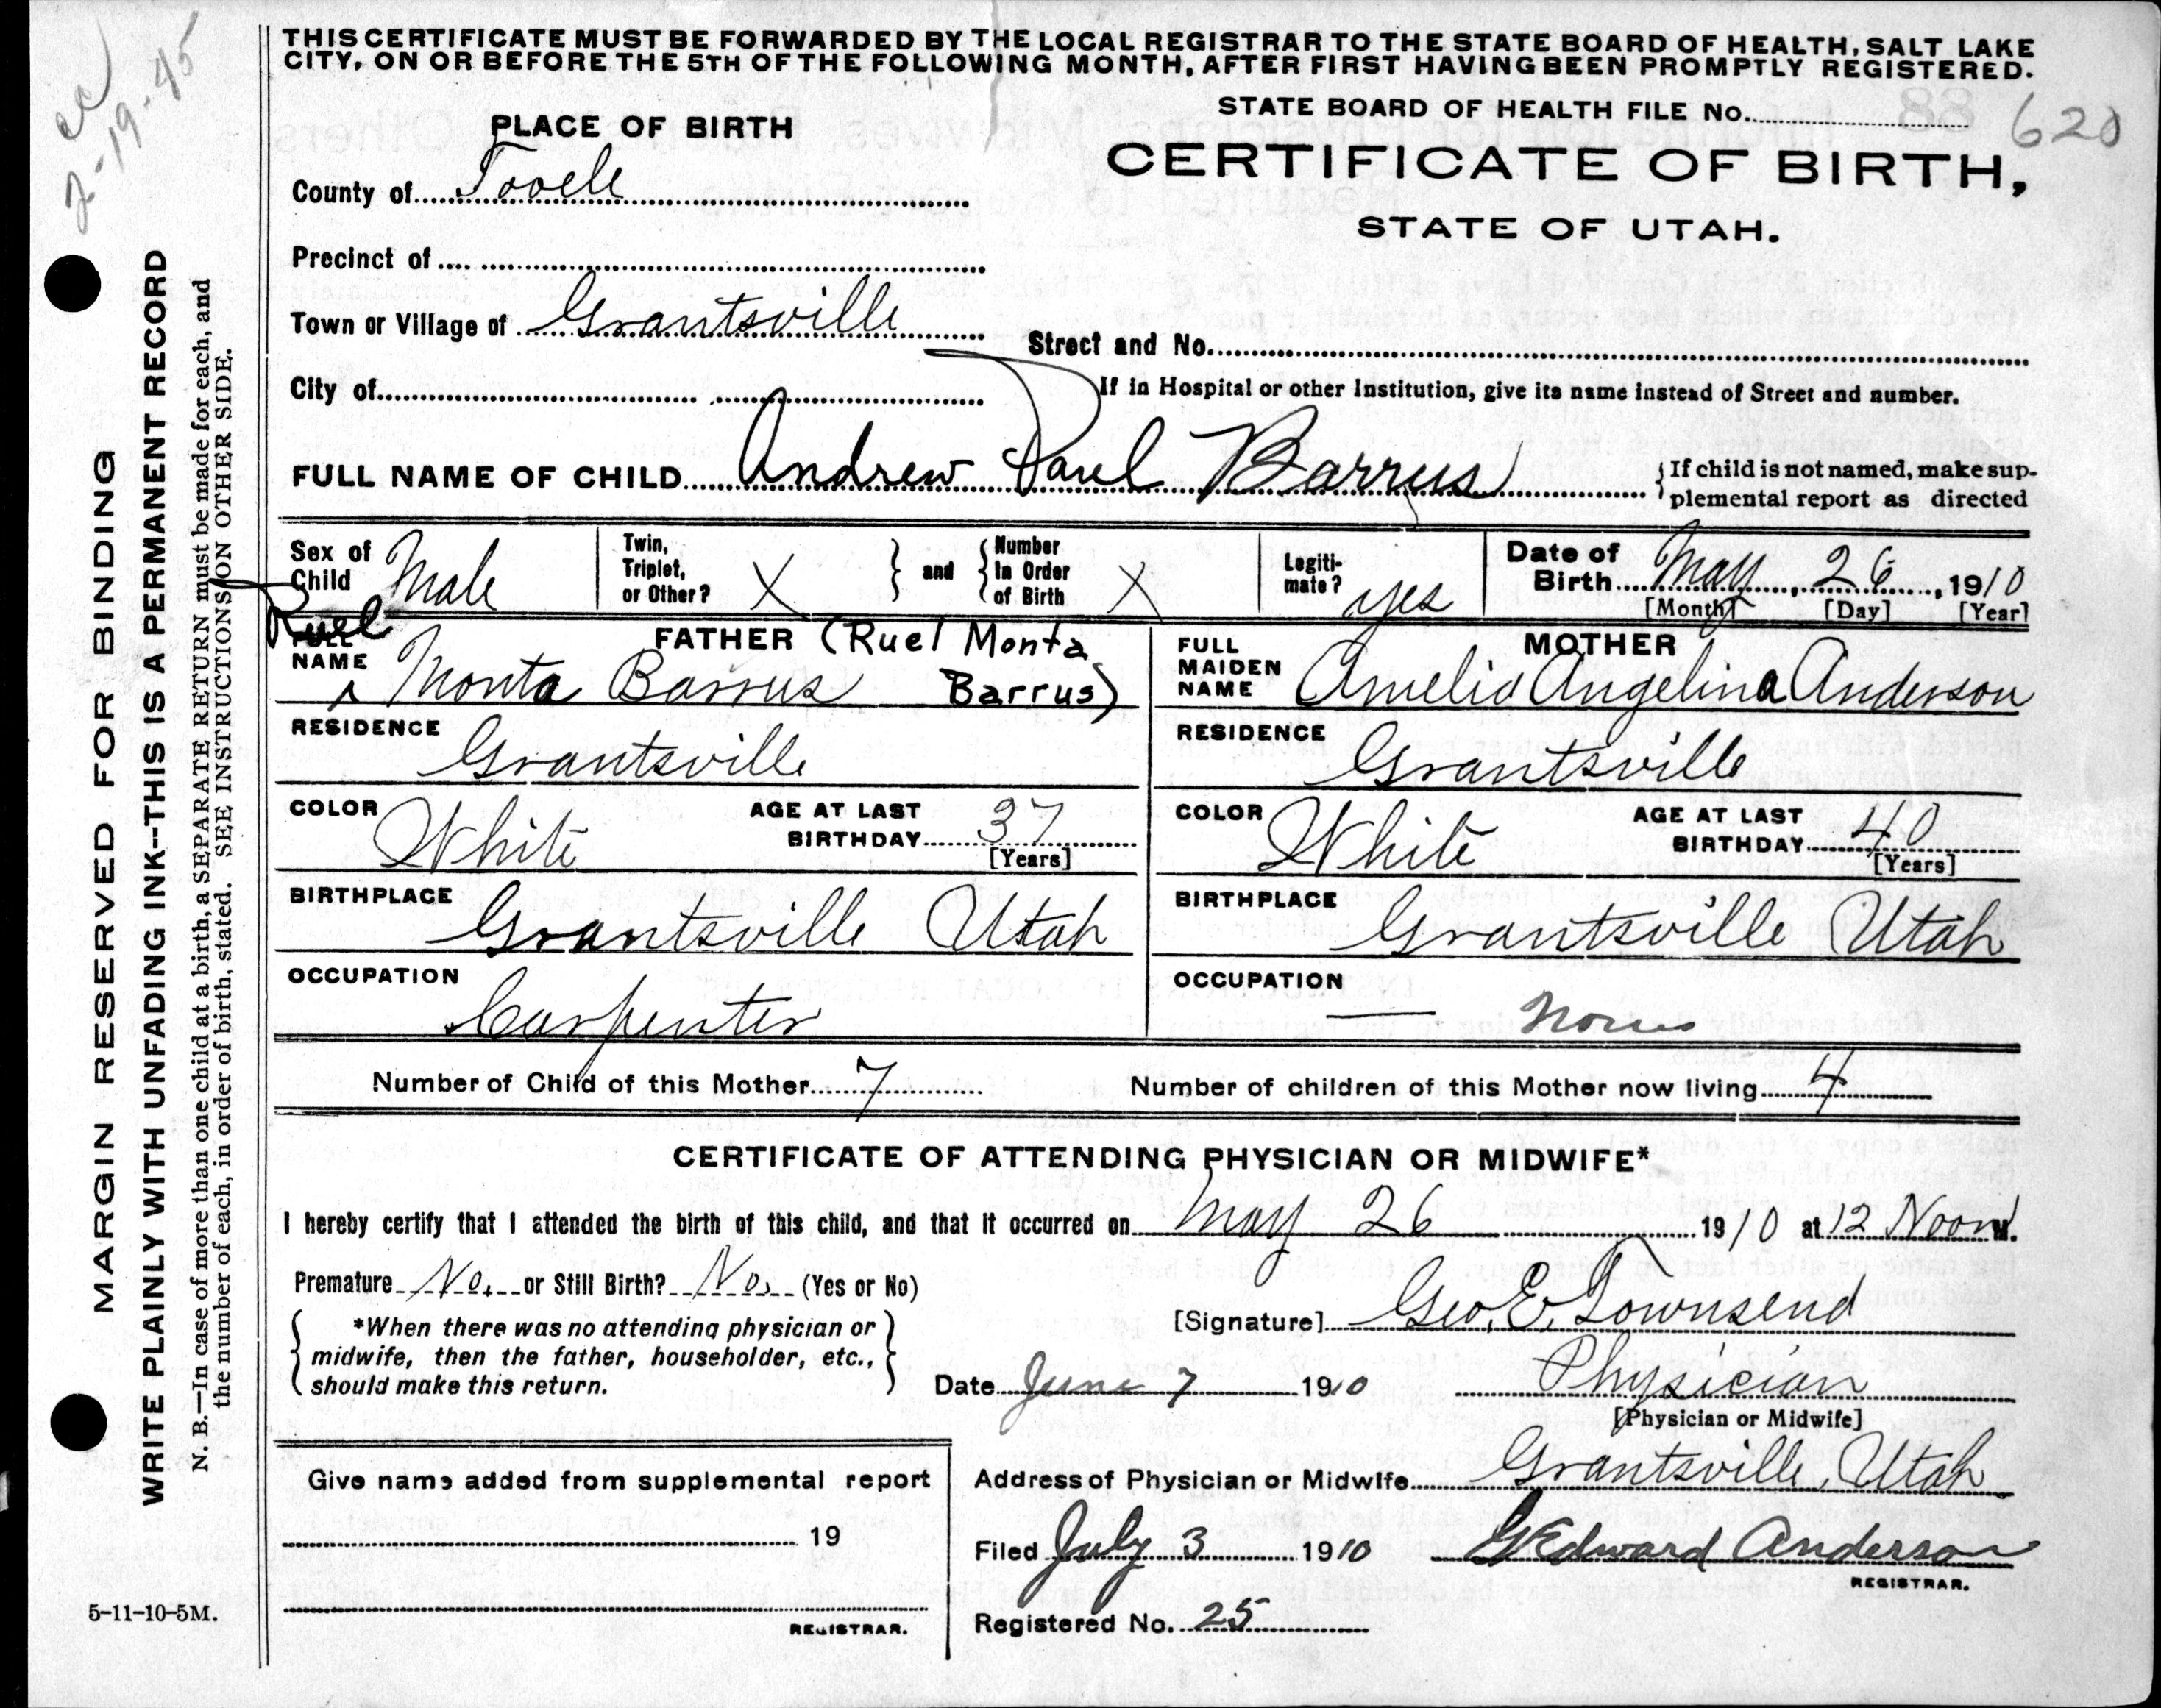 THIS CERTIFICATE MUST BE FORWARDED BY THE LOCAL REGISTRAR TO THE STATE BOARD OF HEALTH, SALT LAKE
CITY, ON OR BEFORE THE 5TH OF THE FOLLOWING MONTH, AFTER FIRST HAVING BEEN PROMPTLY REGISTERED.
2-19-45
STATE BOARD OF HEALTH FILE No. 88 620
PLACE OF BIRTH
CERTIFICATE OF BIRTH,
STATE OF UTAH.
County of Tooele
Precinct of
Town or Village of Grantsville
Street and No.
City of
If in Hospital or other Institution, give its name instead of Street and number.
FULL NAME OF CHILD Andrew Paul Barrus
If child is not named, make sup-
plemental report as directed
Sex of
Child Male
Twin,
Triplet,
or Other? X
and
Number
In Order
of Birth X
Legiti-
mate? yes
Date of
Birth May 26, 1910
[Month] [Day] [Year]
FATHER (Ruel Monta
Barrus)
FULL
NAME Ruel Monta Barrus
RESIDENCE
Grantsville
COLOR White
AGE AT LAST
BIRTHDAY 37
[Years]
BIRTHPLACE
Grantsville Utah
OCCUPATION
Carpenter
MOTHER
FULL
MAIDEN
NAME Amelia Angelina Anderson
RESIDENCE
Grantsville
COLOR White
AGE AT LAST
BIRTHDAY 40
[Years]
BIRTHPLACE
Grantsville Utah
OCCUPATION
Number of Child of this Mother 7
Number of children of this Mother now living 4
CERTIFICATE OF ATTENDING PHYSICIAN OR MIDWIFE*
I hereby certify that I attended the birth of this child, and that it occurred on May 26 1910 at 12 Noon M.
Premature No. or Still Birth? No. (Yes or No)
*When there was no attending physician or
midwife, then the father, householder, etc.,
should make this return.
[Signature] Geo. E. Townsend
Date June 7 1910
Physician
[Physician or Midwife]
Give name added from supplemental report
19
REGISTRAR.
Address of Physician or Midwife Grantsville, Utah
Filed July 3 1910 G Edward Anderson
REGISTRAR.
Registered No. 25
5-11-10-5M.
MARGIN RESERVED FOR BINDING
WRITE PLAINLY WITH UNFADING INK--THIS IS A PERMANENT RECORD
N. B.—In case of more than one child at a birth, a SEPARATE RETURN must be made for each, and
the number of each, in order of birth, stated. SEE INSTRUCTIONS ON OTHER SIDE.